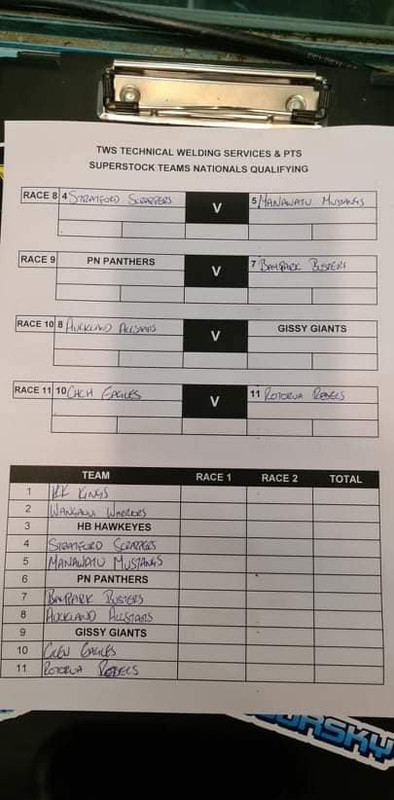 TWS TECHNICAL WELDING SERVICES & PTS
SUPERSTOCK TEAMS NATIONALS QUALIFYING
RACE 8 4 STRATFORD SCRAPPERS V 5 MANAWATU MUSTANGS
RACE 9 PN PANTHERS V 7 BAYPARK BUSTERS
RACE 10 8 AUCKLAND ALLSTARS V GISSY GIANTS
RACE 11 10 CHCH EAGLES V 11 ROTORUA REBELS
TEAM RACE 1 RACE 2 TOTAL
1 KK KINGS
2 WANGANUI WARRIORS
3 HB HAWKEYES
4 STRATFORD SCRAPPERS
5 MANAWATU MUSTANGS
6 PN PANTHERS
7 BAYPARK BUSTERS
8 AUCKLAND ALLSTARS
9 GISSY GIANTS
10 EAGLES
11 ROTORUA REBELS